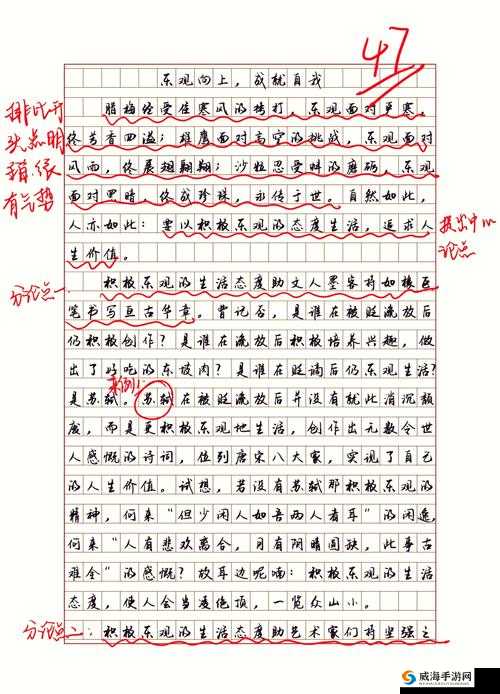 47
乐观向上，成就自我
排比开
头点明
腊梅经受住寒风的拷打，乐观面对严寒，
终芳香四溢；雄鹰面对高空的挑战，乐观面对
有气势
风雨，终展翅翱翔；沙粒忍受蚌的磨砺，乐观
面对黑暗，终成珍珠，永传于世。自然如此，
人亦如此：要以积极乐观的态度生活，追求人
生价值。
提出中心
论点
分论点一
积极乐观的生活态度助文人墨客将如椽巨
笔书写亘古华章。曾记否，是谁在被贬流放后
仍积极创作？是谁在流放后积极培养兴趣，做
出了好吃的东坡肉？是谁在贬谪后仍乐观生活？
举例
是苏轼。苏轼在被贬流放后并没有就此消沉颓
废，而是更积极乐观地生活，创作出无数令世
人感慨的诗词，位列唐宋八大家，实现了自己
的人生价值。试想，若没有苏轼那积极乐观的
精神，何来“但少闲人如吾两人者耳”的闲逸，
何来“人有悲欢离合，月有阴晴圆缺，此事古
难全”的感慨？故耳边呢喃：积极乐观的生活
态度，使人会当凌绝顶，一览众山小。
分论点二：
积极乐观的生活态度助艺术家们将坚强之
威海手游网